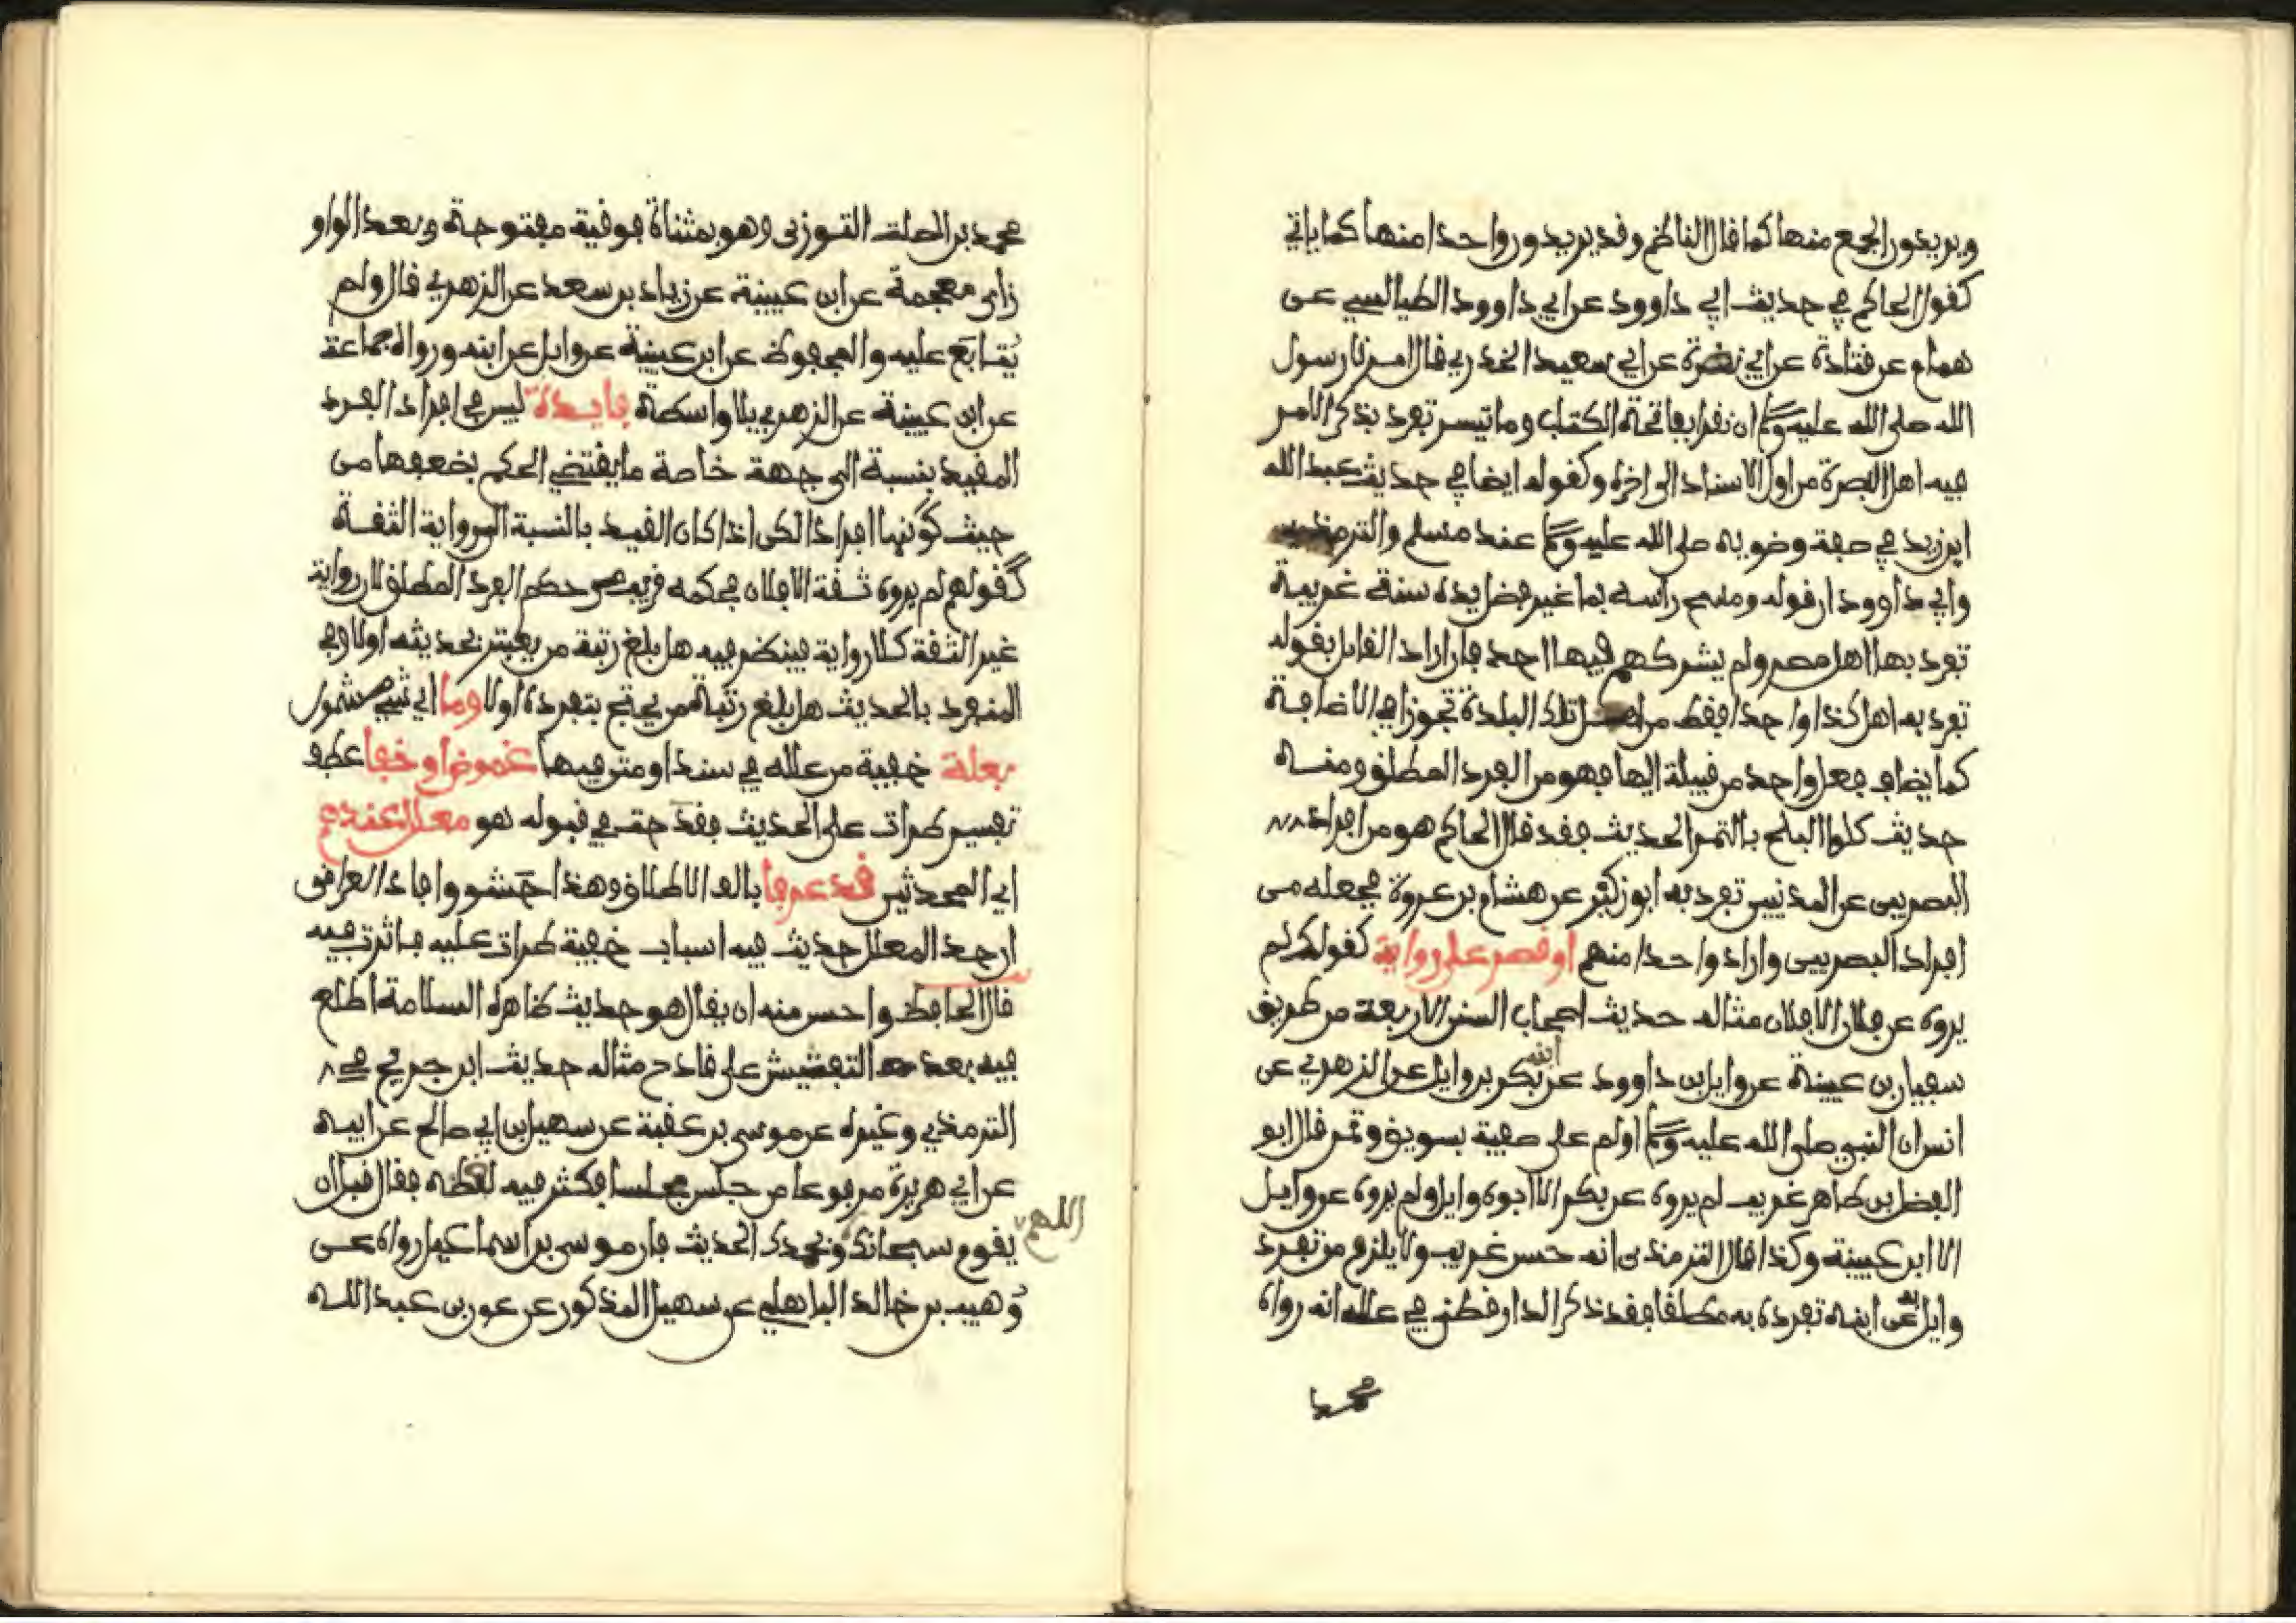 ويريدون الجمع منها كما قال الناظم وقد يريدون واحدا منها كما ياتي
كقول الحاكم في حديث ابي داوود عن ابي داوود الطيالسي عن
همام عن قتادة عن ابي نضرة عن ابي سعيد الخدري قال امرنا رسول
الله صلى الله عليه وسلم ان نقرا بفاتحة الكتاب وما تيسر تفرد بذكر الامر
فيه اهل البصرة من اول الاسناد الى اخره وكقوله ايضا في حديث عبد الله
ابن زيد في صفة وضويه صلى الله عليه وسلم عند مسلم والترمذي
وابي داوود ان قوله ومسح راسه بما غير فضل يده سنة غريبة
تفرد بها اهل مصر ولم يشركهم فيها احد فان اراد القايل بقوله
تفرد به اهل كذا واحدا فقط من اهل تلك البلدة تجوزا في الاضافة
كما يضاف فعل واحد من قبيلة اليها فهو من الفرد المطلق ومنه
حديث كلوا البلح بالتمر الحديث فقد قال الحاكم هو من افراد
البصريين عن المدنيين تفرد به ابو زكير عن هشام بن عروة فجعله من
افراد البصريين واراد واحدا منهم او قصر على رواية كقولك لم
يروه عن فلان الا فلان مثاله حديث اصحاب السنن الاربعة من طريق
سفيان بن عيينة عن وايل بن داوود عن ابنه بكر بن وايل عن الزهري عن
انس ان النبي صلى الله عليه وسلم اولم على صفية بسويق وتمر قال ابو
الفضل بن طاهر غريب لم يروه عن بكر الا ابوه وايل ولم يروه عن وايل
الا ابن عيينة وكذا قال الترمذي انه حسن غريب ولا يلزم من تفرد
وايل به عن ابنه تفرده به مطلقا فقد ذكر الدارقطني في علله انه رواه
محمد
محمد بن الصلت التوزي وهو بمثناة فوقية مفتوحة وبعد الواو
زاي معجمة عن ابن عيينة عن زياد بن سعد عن الزهري قال ولم
يُتابَع عليه والمحفوظ عن ابن عيينة عن وايل عن ابنه ورواه جماعة
عن ابن عيينة عن الزهري بلا واسطة فايدة ليس في افراد الفرد
المقيد بنسبة الى جهة خاصة ما يقتضي الحكم بضعفها من
حيث كونها افرادا لكن اذا كان القيد بالنسبة الى رواية الثقة
كقولهم لم يروه ثقة الا فلان فحكمه قريب من حكم الفرد المطلق لان رواية
غير الثقة كلا رواية فينظر فيه هل بلغ رتبة من يعتبر بحديثه اولا وفي
المنفرد بالحديث هل بلغ رتبة من يحتج بتفرده اولا وما اي شيء شمول
بعلة خفية من علله في سند او متن فيها غموض او خفا عطف
تفسير طرات على الحديث فقدحت في قبوله هو معلل عندهم
اي المحدثين قد عرفا بالف الاطلاق وهذا حَشو وافاد العراقي
ان حد المعلل حديث فيه اسباب خفية طرات عليه فاثرت فيه
قال الحافظ واحسن منه ان يقال هو حديث ظاهره السلامة اطلع
فيه بعد التفتيش على قادح مثاله حديث ابن جريج في
الترمذي وغيره عن موسى بن عقبة عن سهيل بن ابي صالح عن ابيه
عن ابي هريرة مرفوعا من جلس مجلسا فكثر فيه لغطه فقال قبل ان
يقوم سبحانك اللهم وبحمدك الحديث فان موسى بن اسماعيل رواه عن
وُهيب بن خالد الباهلي عن سهيل المذكور عن عون بن عبد الله